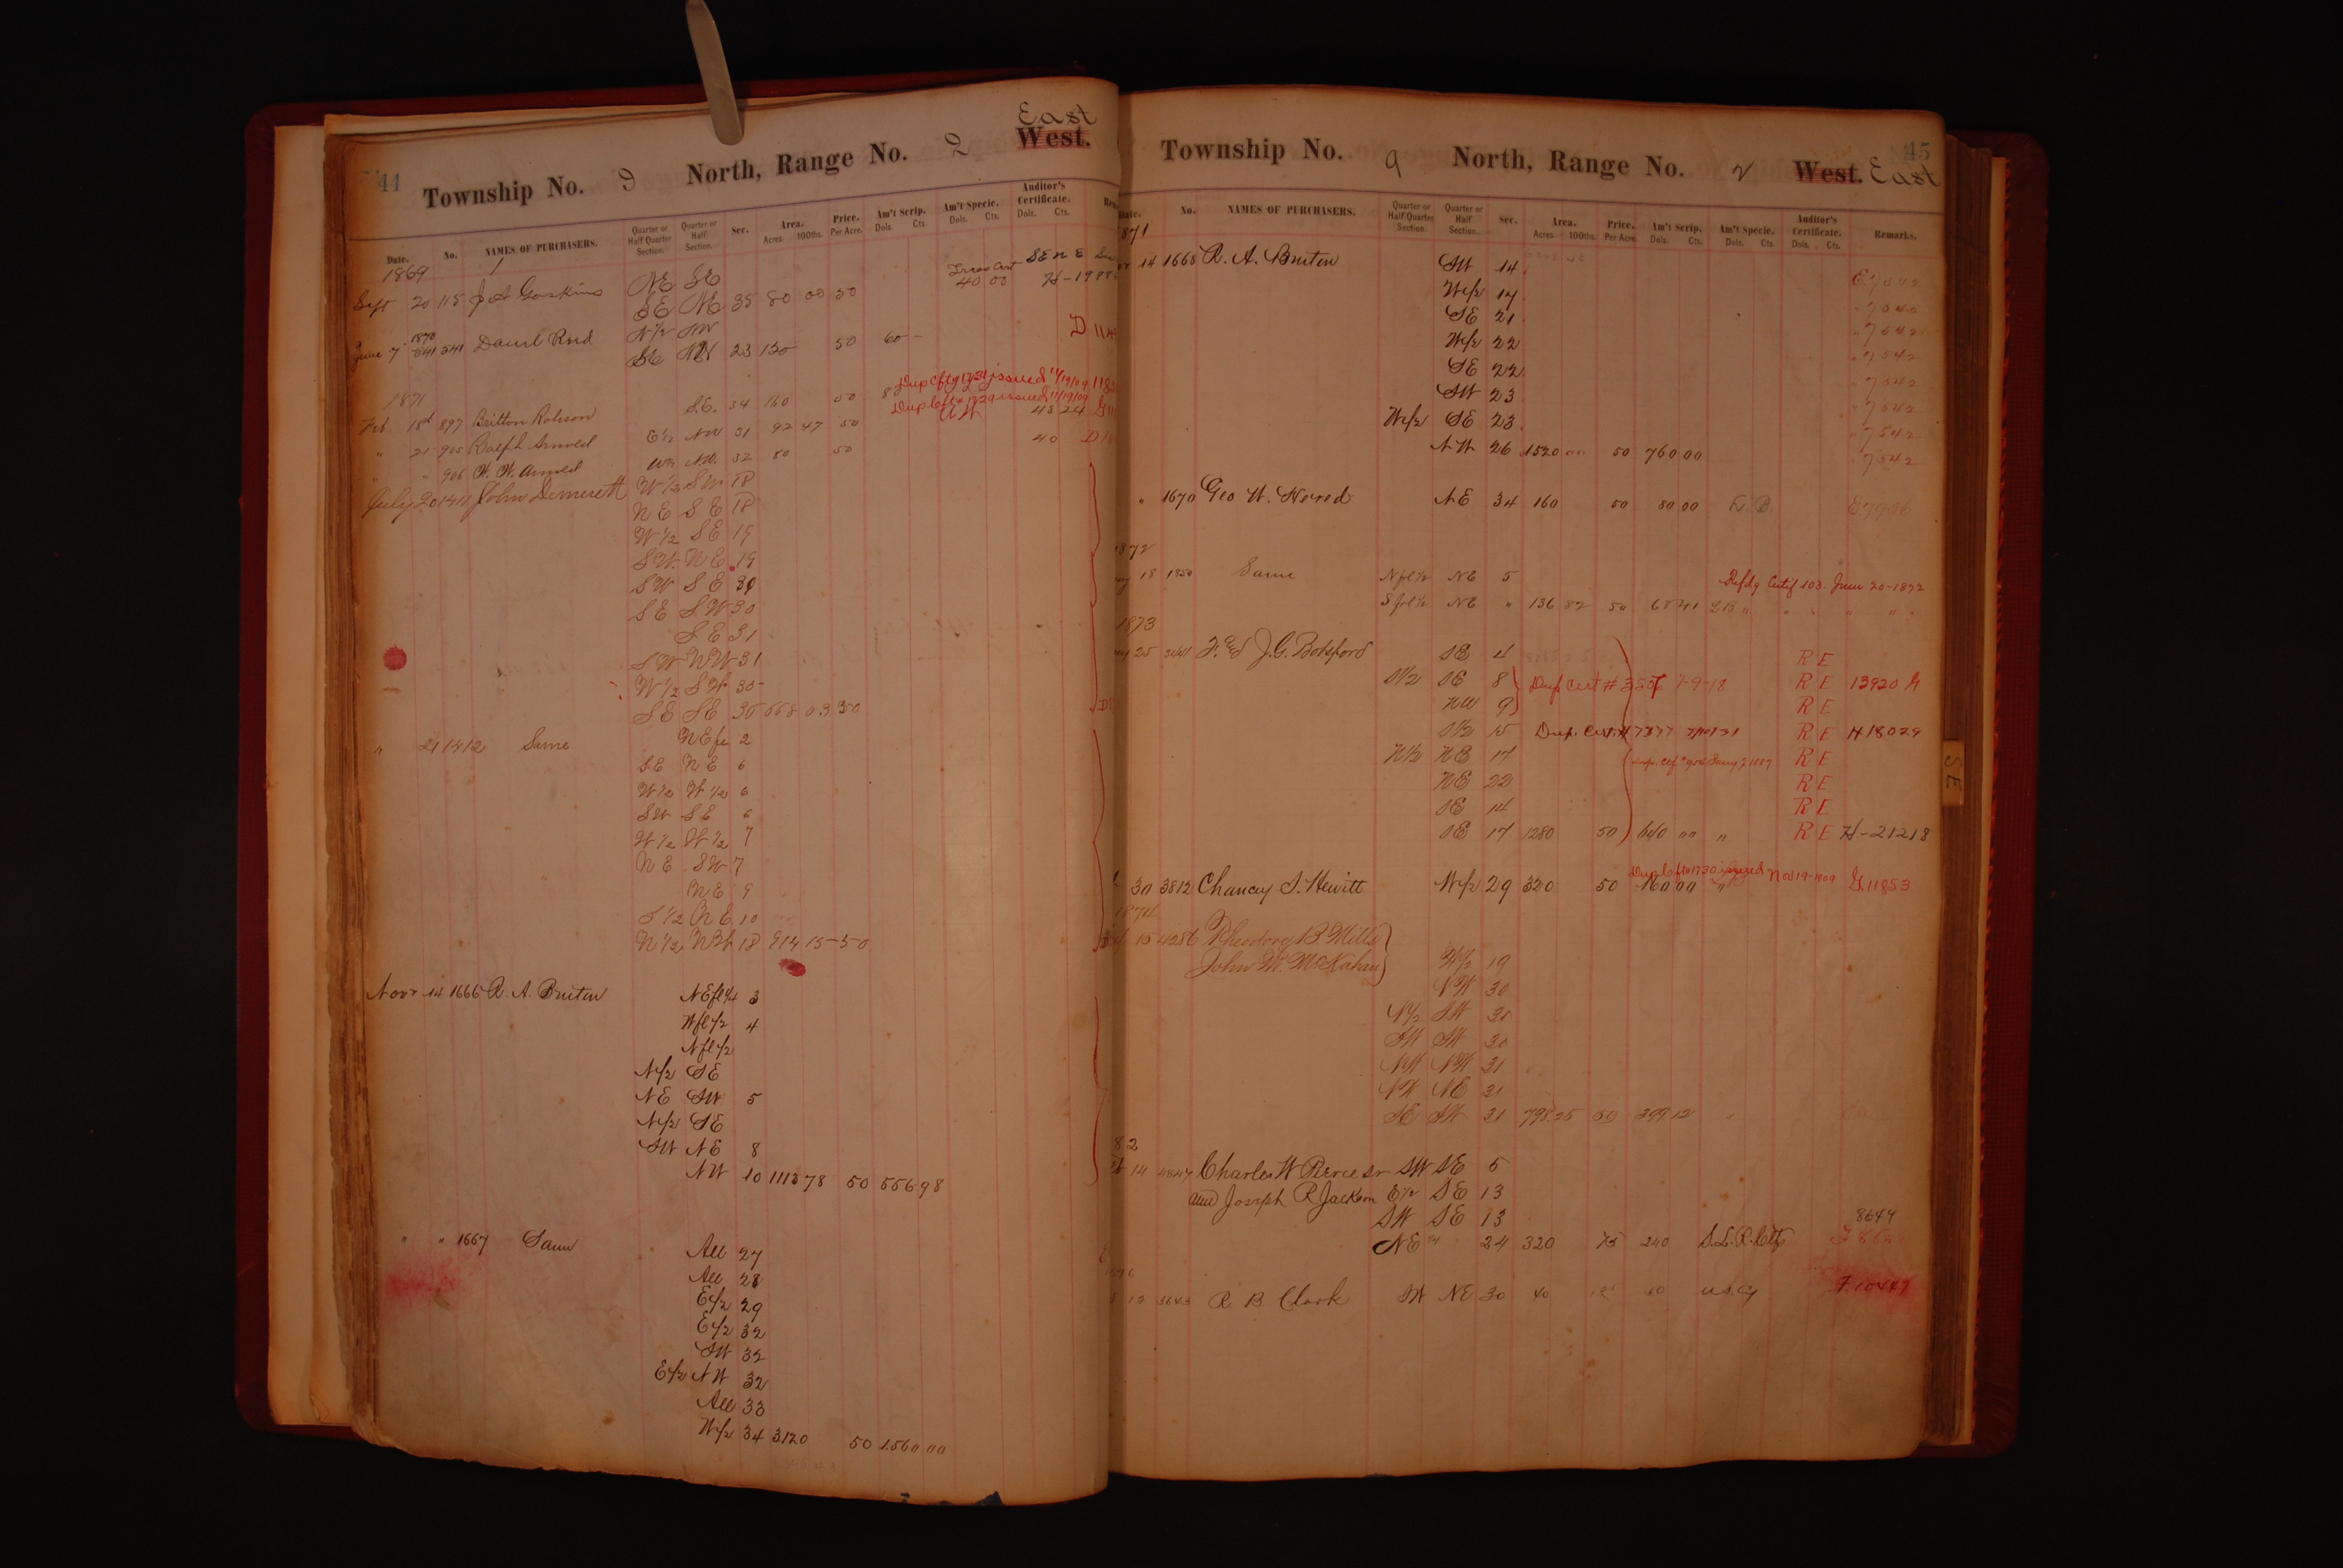 44
East
Township No. 9 North, Range No. 2 West.
Date. No. NAMES OF PURCHASERS. Quarter or Half Quarter Section. Quarter or Half Section. Sec. Area. Acres 100ths. Price. Per Acre. Am't Scrip. Dols. Cts. Am't Specie. Dols. Cts. Auditor's Certificate. Dols. Cts.
1869
NE SE
Sept 20 115 J A Gaskins SE NE 35 80 00 50 40 00
1870 N½ NW
June 7 541 Danl Reed 23 120 50 60 -
Dup Cft 1731 issued 11/19/09
1871
Dup Cft 1729 issued 11/19/09
Feb 18 897 Britton Robson S.E. 34 160 50
" 21 905 Ralph Arnold E½ NW 31 92 47 50 43 24
" " 906 W. W. Arnold W½ N.W. 32 80 50 40
July 20 1411 John Demerett W½ SW 18
NE SE 18
W½ SE 19
SW NE 19
SW SE 30
SE SW 30
SE 31
SW NW 31
W½ SW 35
SE SE 35 558 03 50
" 21 1412 Same NE fl 2
SE NE 6
W½ W½ 6
SW SE 6
W½ W½ 7
NE SW 7
NE 9
S½ NE 10
N½ NW 18 914 15 50
Novr 14 1666 R. A. Bruton NE fl ¼ 3
W fl ½ 4
N fl ½
N½ SE
NE SW 5
N½ SE
SW NE 8
NW 10 1113 78 50 556 98
" " 1667 Same All 27
All 28
E½ 29
E½ 32
SW 32
E½ NW 32
All 33
W½ 34 3120 50 1560 00
45
Township No. 9 North, Range No. 2 West. East
No. NAMES OF PURCHASERS. Quarter or Half Quarter Section. Quarter or Half Section. Sec. Area. Acres 100ths. Price. Per Acre Am't Scrip. Dols. Cts. Am't Specie. Dols. Cts. Auditor's Certificate. Dols. Cts. Remarks.
14 1668 R. A. Bruton SW 14 E 7542
W½ 17 " 7542
SE 21 " 7542
W½ 22 " 7542
SE 22 " 7542
SW 23 " 7542
W½ SE 23 " 7542
NW 26 1520 00 50 760 00 " 7542
" 1670 Geo W. Hored NE 34 160 50 80 00 L.B.
1872
18 1850 Same N fl ½ NE 5 Refdg Certif 103. June 20-1892
S frl ½ NE " 136 82 50 68 41 L B " " " "
1873
25 F. and J.G. Botsford SE 4 R E
S½ SE 8 Dup Cert # 7-9-18 R E 13920 H
NW 9 R E
S½ 15 Dup. Cert. # R E H 18029
N½ NE 17 R E
NE 22 R E
SE 14 R E
SE 17 1280 50 640 00 " R E H-21218
Dup Cft 1730 issued Nov 19-1909
30 3812 Chancey S. Hewitt W½ 29 320 50 160 00 " G 11853
1874
15 4286 Theodore B Mills
John M. McKahan W½ 19
NW 30
N½ SW 30
SW SW 30
NW NW 31
NW NE 31
SE SW 31 798.25 50 399.12 "
82
14 4847 Charles W Pierce Sr SW SE 5
and Joseph R Jackson E½ SE 13
SW SE 13 8649
NE 24 320 75 240 S.L.R. Ctf
R. B. Clark SW NE 30 40 F 10447
SE